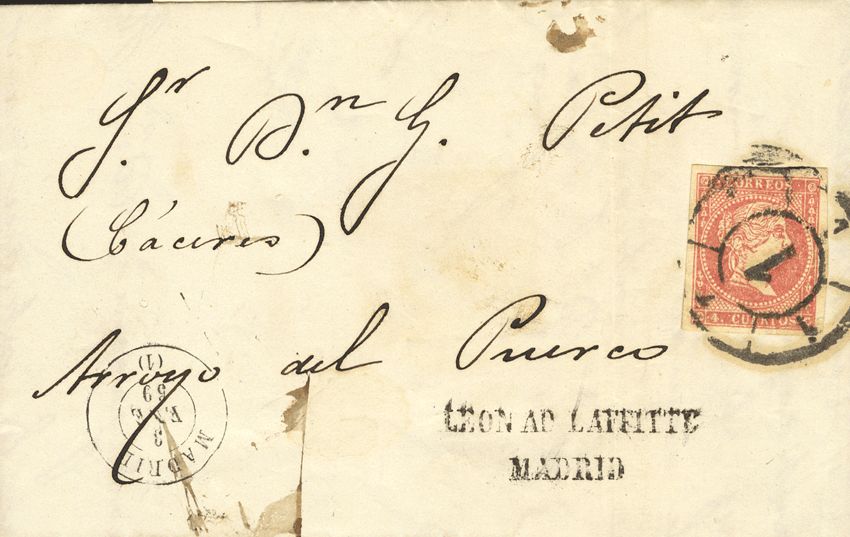 Sr. Dn. G. Petit
(Cáceres)
Arroyo del Puerco
CORREOS
4. CUARTOS
1
MADRID
ENE
59
(1)
LEON AD LAFFITTE
MADRID